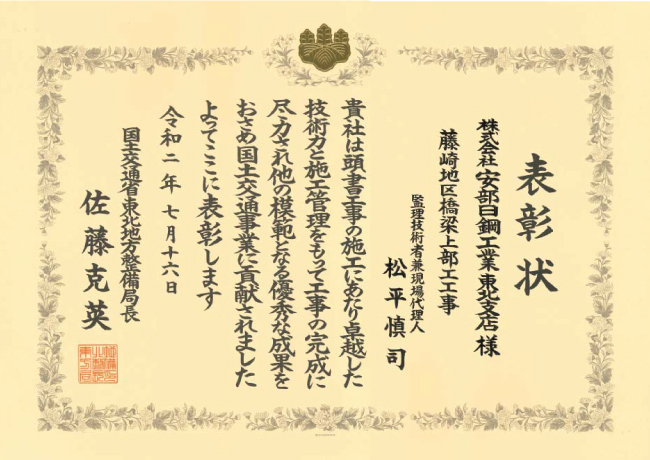 表彰状
株式会社安部日鋼工業東北支店様
藤崎地区橋梁上部工工事
監理技術者兼現場代理人
松平慎司
貴社は頭書工事の施工にあたり卓越した
技術力と施工管理をもって工事の完成に
尽力され他の模範となる優秀な成果を
おさめ国土交通事業に貢献されました
よってここに表彰します
令和二年七月十六日
国土交通省東北地方整備局長
佐藤克英